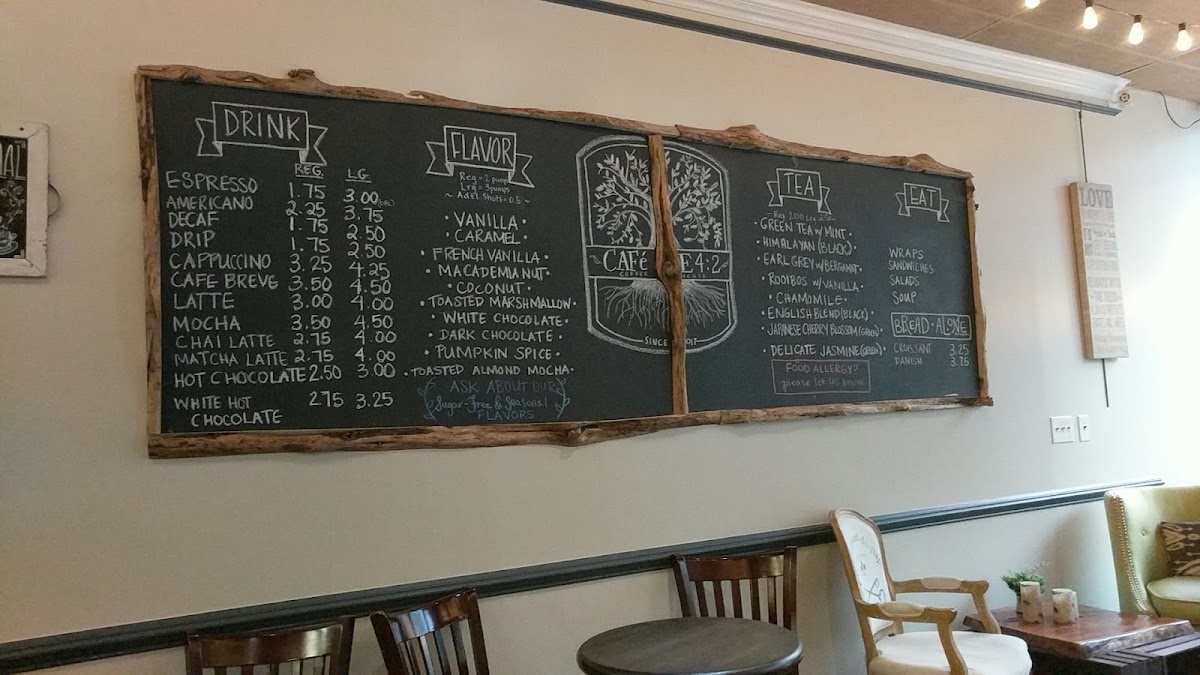 DRINK
REG. LG.
ESPRESSO 1.75 3.00 (DBL)
AMERICANO 2.25 3.75
DECAF 1.75 2.50
DRIP 1.75 2.50
CAPPUCCINO 3.25 4.25
CAFE BREVE 3.50 4.50
LATTE 3.00 4.00
MOCHA 3.50 4.50
CHAI LATTE 2.75 4.00
MATCHA LATTE 2.75 4.00
HOT CHOCOLATE 2.50 3.00
WHITE HOT 2.75 3.25
CHOCOLATE
FLAVOR
Reg = 2 pumps
Lrg = 3 pumps
~ Add'l Shots = 0.5 ~
• VANILLA •
• CARAMEL •
• FRENCH VANILLA •
• MACADEMIA NUT •
• COCONUT •
• TOASTED MARSHMALLOW •
• WHITE CHOCOLATE •
• DARK CHOCOLATE •
• PUMPKIN SPICE •
• TOASTED ALMOND MOCHA •
ASK ABOUT OUR
Sugar-Free & Seasonal
FLAVORS
CAFé E 4:2
COFFEE HOUSE
SINCE 017
TEA
• GREEN TEA w/ MINT •
• HIMALAYAN (BLACK) •
• EARL GREY w/ BERGAMOT •
• ROOIBOS w/ VANILLA •
• CHAMOMILE •
• ENGLISH BLEND (BLACK) •
JAPANESE CHERRY BLOSSOM (GREEN)
• DELICATE JASMINE (GREEN) •
FOOD ALLERGY?
please let us know
EAT
WRAPS
SANDWICHES
SALADS
SOUP
BREAD • ALONE
CROISSANT 3.25
DANISH 3.75
LOVE